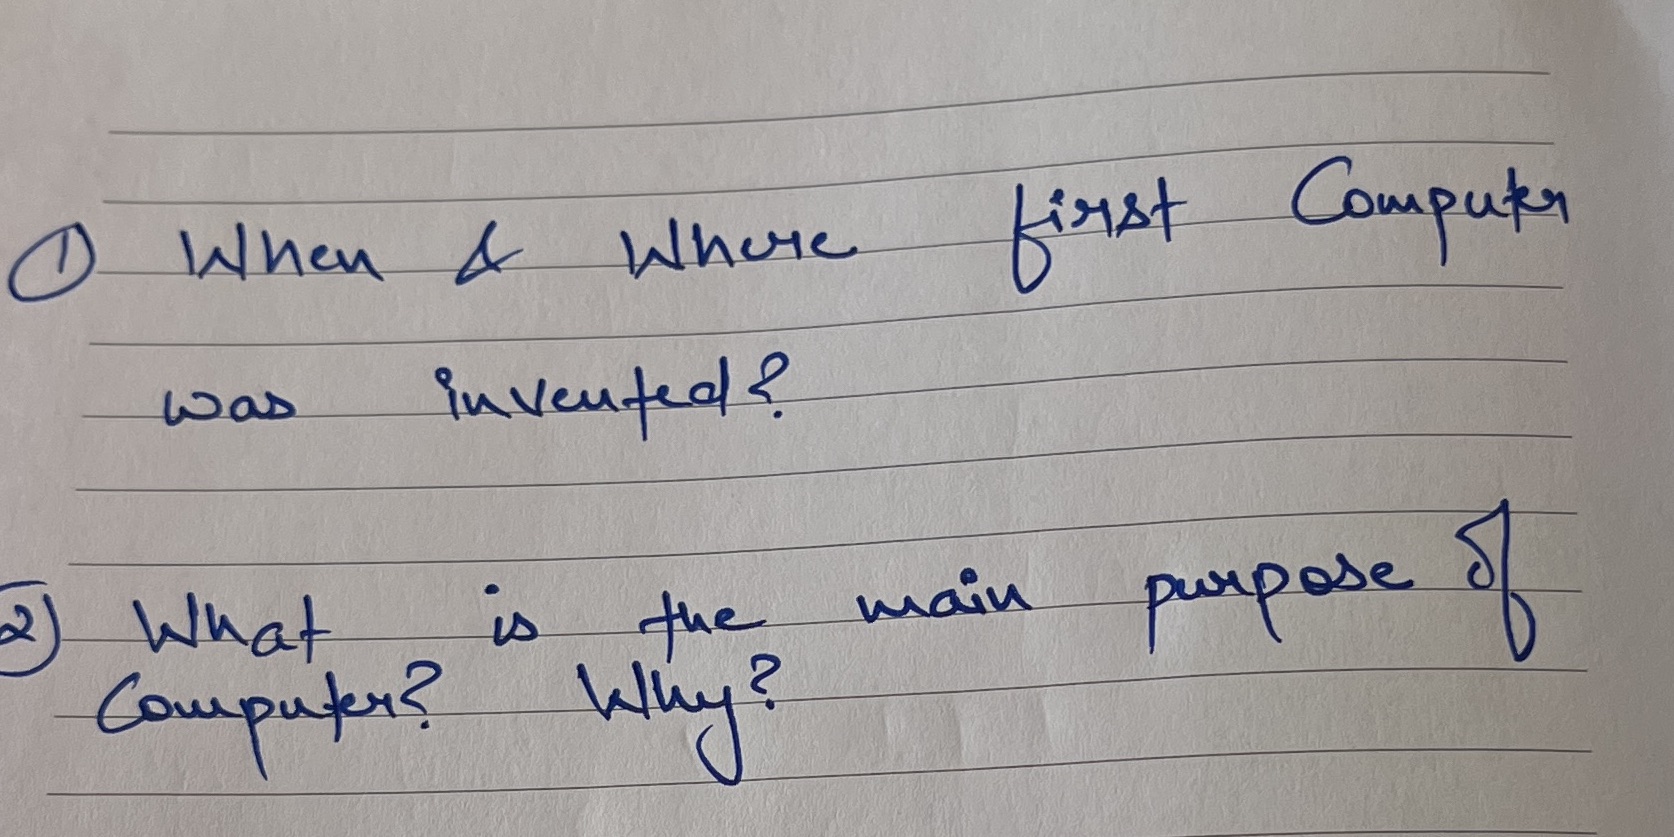 ① When & Where first Computer
was invented?
② What is the main purpose of
Computer? Why?